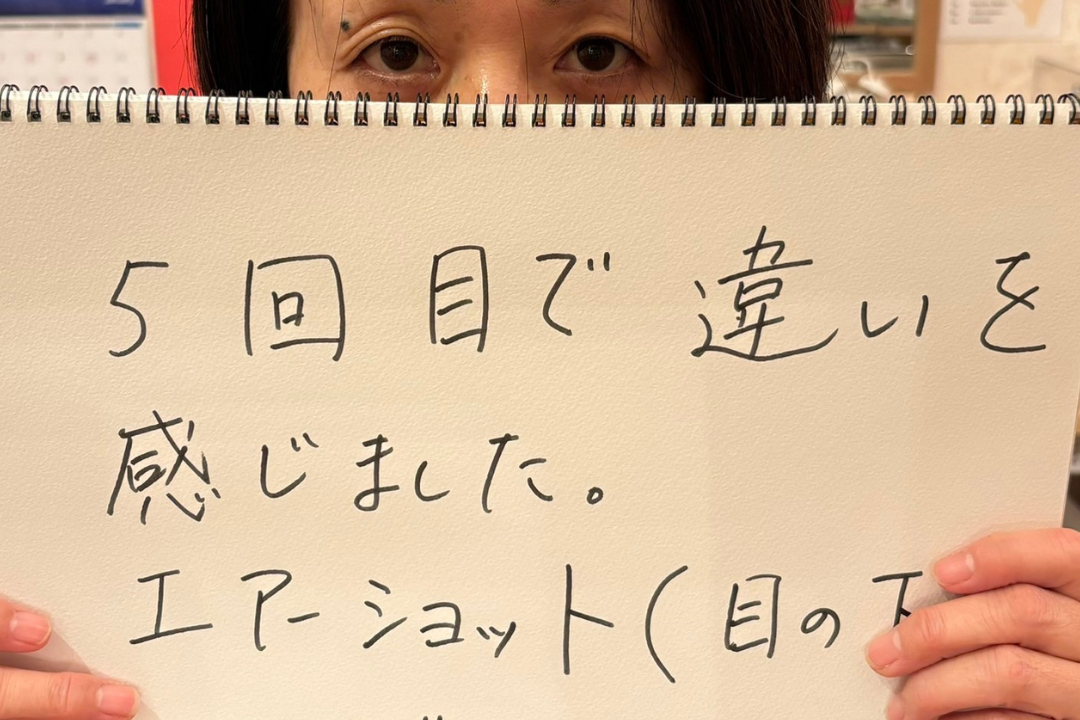 5回目で違いを
感じました。
エアーショット(目の下